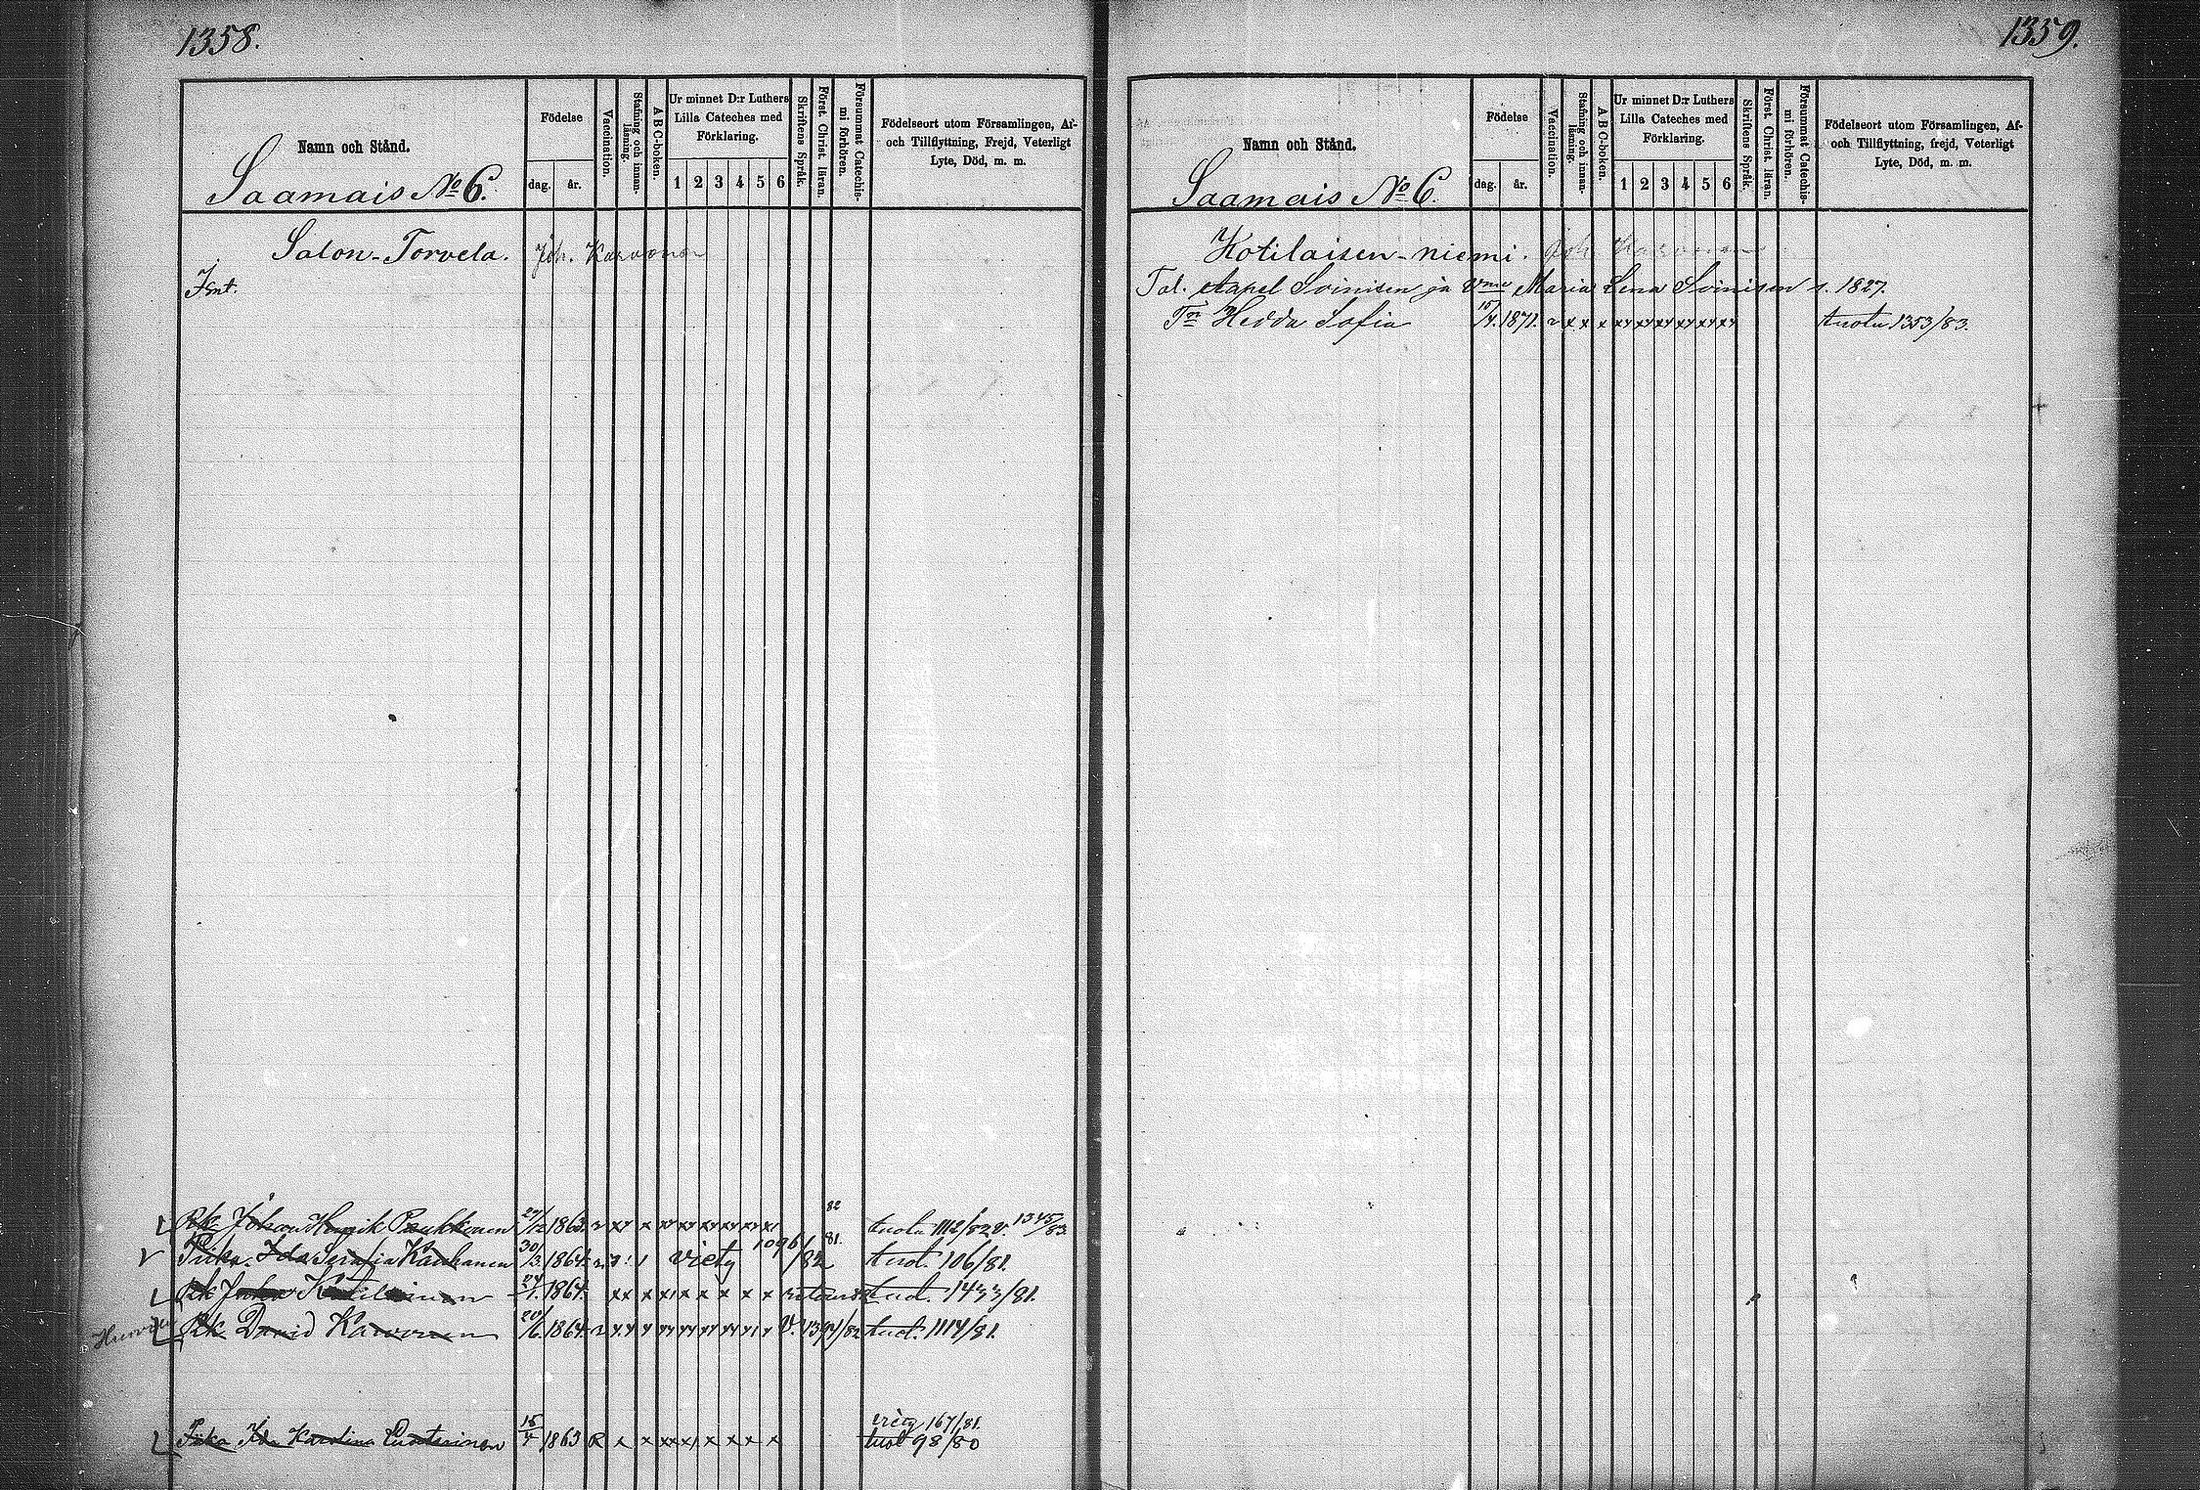 1358.
Namn och Stånd.
Saamais No 6.
Födelse
dag. år.
Vaccination.
Stafning och innan-läsning.
A B C-boken.
Ur minnet D:r Luthers
Lilla Cateches med
Förklaring.
1 2 3 4 5 6
Skriftens Språk.
Först. Christ. läran.
Försummat Catechis-
mi förhören.
Födelseort utom Församlingen, Af-
och Tillflyttning, Frejd, Veterligt
Lyte, Död, m. m.
Salon-Torvela. Joh. Karvonen
Johan Henrik Pukkonen 1863 x x 82 1112/82 1345/83
Ida Serafia Kauhanen 30/3 1864 viety 1096/82 81. tuot. 106/81.
24/1. 1864 xx x x x x x x tuot. 1433/81.
Rk. David Karvonen 20/6. 1864 V. 1394/82 tuot. 1114/81.
viety 167/81.
Ida Karolina 15/4 1863 R x x x x x x x tuot 98/80
1359.
Namn och Stånd.
Saamais No 6.
Födelse
dag. år.
Vaccination.
Stafning och innan-läsning.
A B C-boken.
Ur minnet D:r Luthers
Lilla Cateches med
Förklaring.
1 2 3 4 5 6
Skriftens Språk.
Först. Christ. läran.
Försummat Catechis-
mi förhören.
Födelseort utom Församlingen, Af-
och Tillflyttning, frejd, Veterligt
Lyte, Död, m. m.
Kotilaisen-niemi. Joh. Karvonen
Tal. Aapel Soinisen ja Vmo Maria Lena Soinisen s. 1827.
Tr Hedda Sofia 15/4. 1871. tuotu 1353/83.